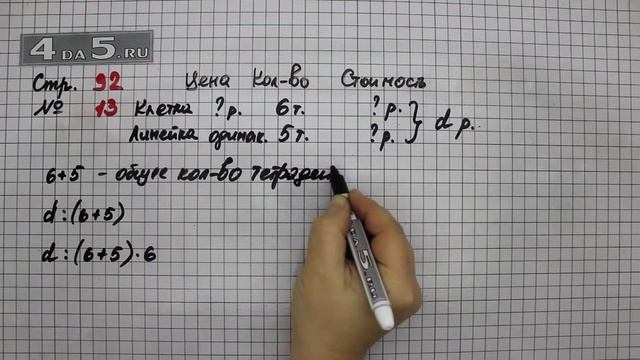 4 DA 5.RU
Стр. 92 Цена Кол-во Стоимость
№ 13 Клетка ?р. 6 т. ?р.
Линейка одинак. 5 т. ?р. } d р.
6+5 - общее кол-во тетрадей
d:(6+5)
d:(6+5)·6
4 DA 5.RU